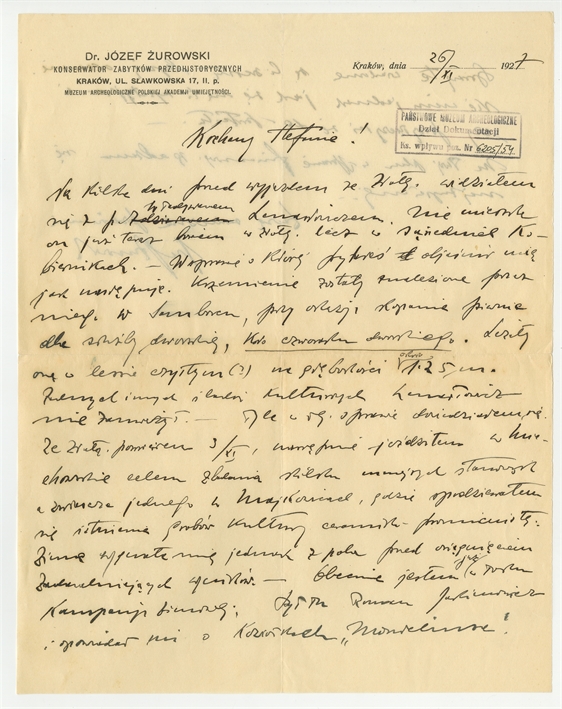 Dr. JÓZEF ŻUROWSKI
KONSERWATOR ZABYTKÓW PRZEDHISTORYCZNYCH
KRAKÓW, UL. SŁAWKOWSKA 17, II. p.
MUZEUM ARCHEOLOGICZNE POLSKIEJ AKADEMJI UMIEJĘTNOŚCI.
Kraków, dnia 26/XI 1927
PAŃSTWOWE MUZEUM ARCHEOLOGICZNE
Dział Dokumentacji
Ks. wpływu poz. Nr 6205/54
Kochany Stefanie!
Na kilka dni przed wyjazdem ze Złotej widziałem
się z p. Władysławem Lenartowiczem. Nie mieszka
on już teraz bowiem w Złotej lecz w sąsiednich Ko-
biernikach. — W sprawie o którą pytasz objaśnił mię
jak następuje. Krzemienie zostały znalezione przez
niego w Samborcu, przy okazji kopania
dla szkoły dworskiej, koło czworaku dworskiego. Leżały
one w lessie czystym (?) na głębokości około 1·25 m.
Żadnych innych śladów kulturowych Lenartowicz
nie zauważył. — Tyle w tej sprawie dowiedziałem się.
Ze Złotej powróciłem 3/XI, następnie jeździłem w Mie-
chowskie celem zbadania kilku stanowisk
a zwłaszcza jednego w, gdzie spodziewałem
się istnienia grobów kultury ceramiki promienistej.
Zima wygnała mię jednak z pola przed osiągnięciem
zadowalniających wyników. — Obecnie jestem już w toku
kampanji zimowej. Był tu Roman Jakimowicz
i opowiadał mi o